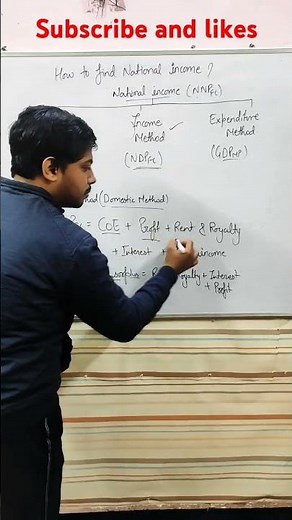 Subscribe and likes
How to find National income?
National income (NNPFC)
Income Method ✓
Expenditure Method
(NDPFC)
(GDPMP)
(Domestic Method)
= COE + Profit + Rent & Royalty
+ Interest + income
= Royalty + Interest
+ Profit